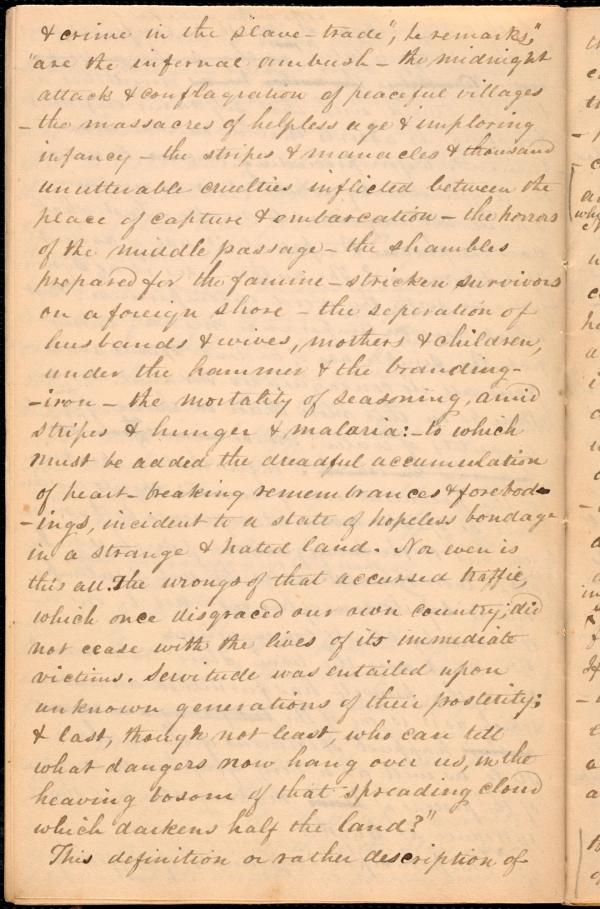 & crime in the "slave-trade", he remarks,"
"are the infernal ambush – the midnight
attack & conflagration of peaceful villages
– the massacres of helpless age & imploring
infancy – the stripes & manacles & thousand
unutterable cruelties inflicted between the
place of capture & embarcation – the horrors
of the middle passage – the shambles
prepared for the famine-stricken survivors
on a foreign shore – the seperation of
husbands & wives, mothers & children,
under the hammer & the branding-
-iron – the mortality of seasoning, amid
stripes & hunger & malaria: – to which
must be added the dreadful accumulation
of heart-breaking remembrances & forebod-
-ings, incident to a state of hopeless bondage
in a strange & hated land. Nor even is
this all. The wrongs of that accursed traffic,
which once disgraced our own country, did
not cease with the lives of its immediate
victims. Servitude was entailed upon
unknown generations of their posterity;
& last, though not least, who can tell
what dangers now hang over us, in the
heaving bosom of that spreading cloud
which darkens half the land?"
This definition or rather description of